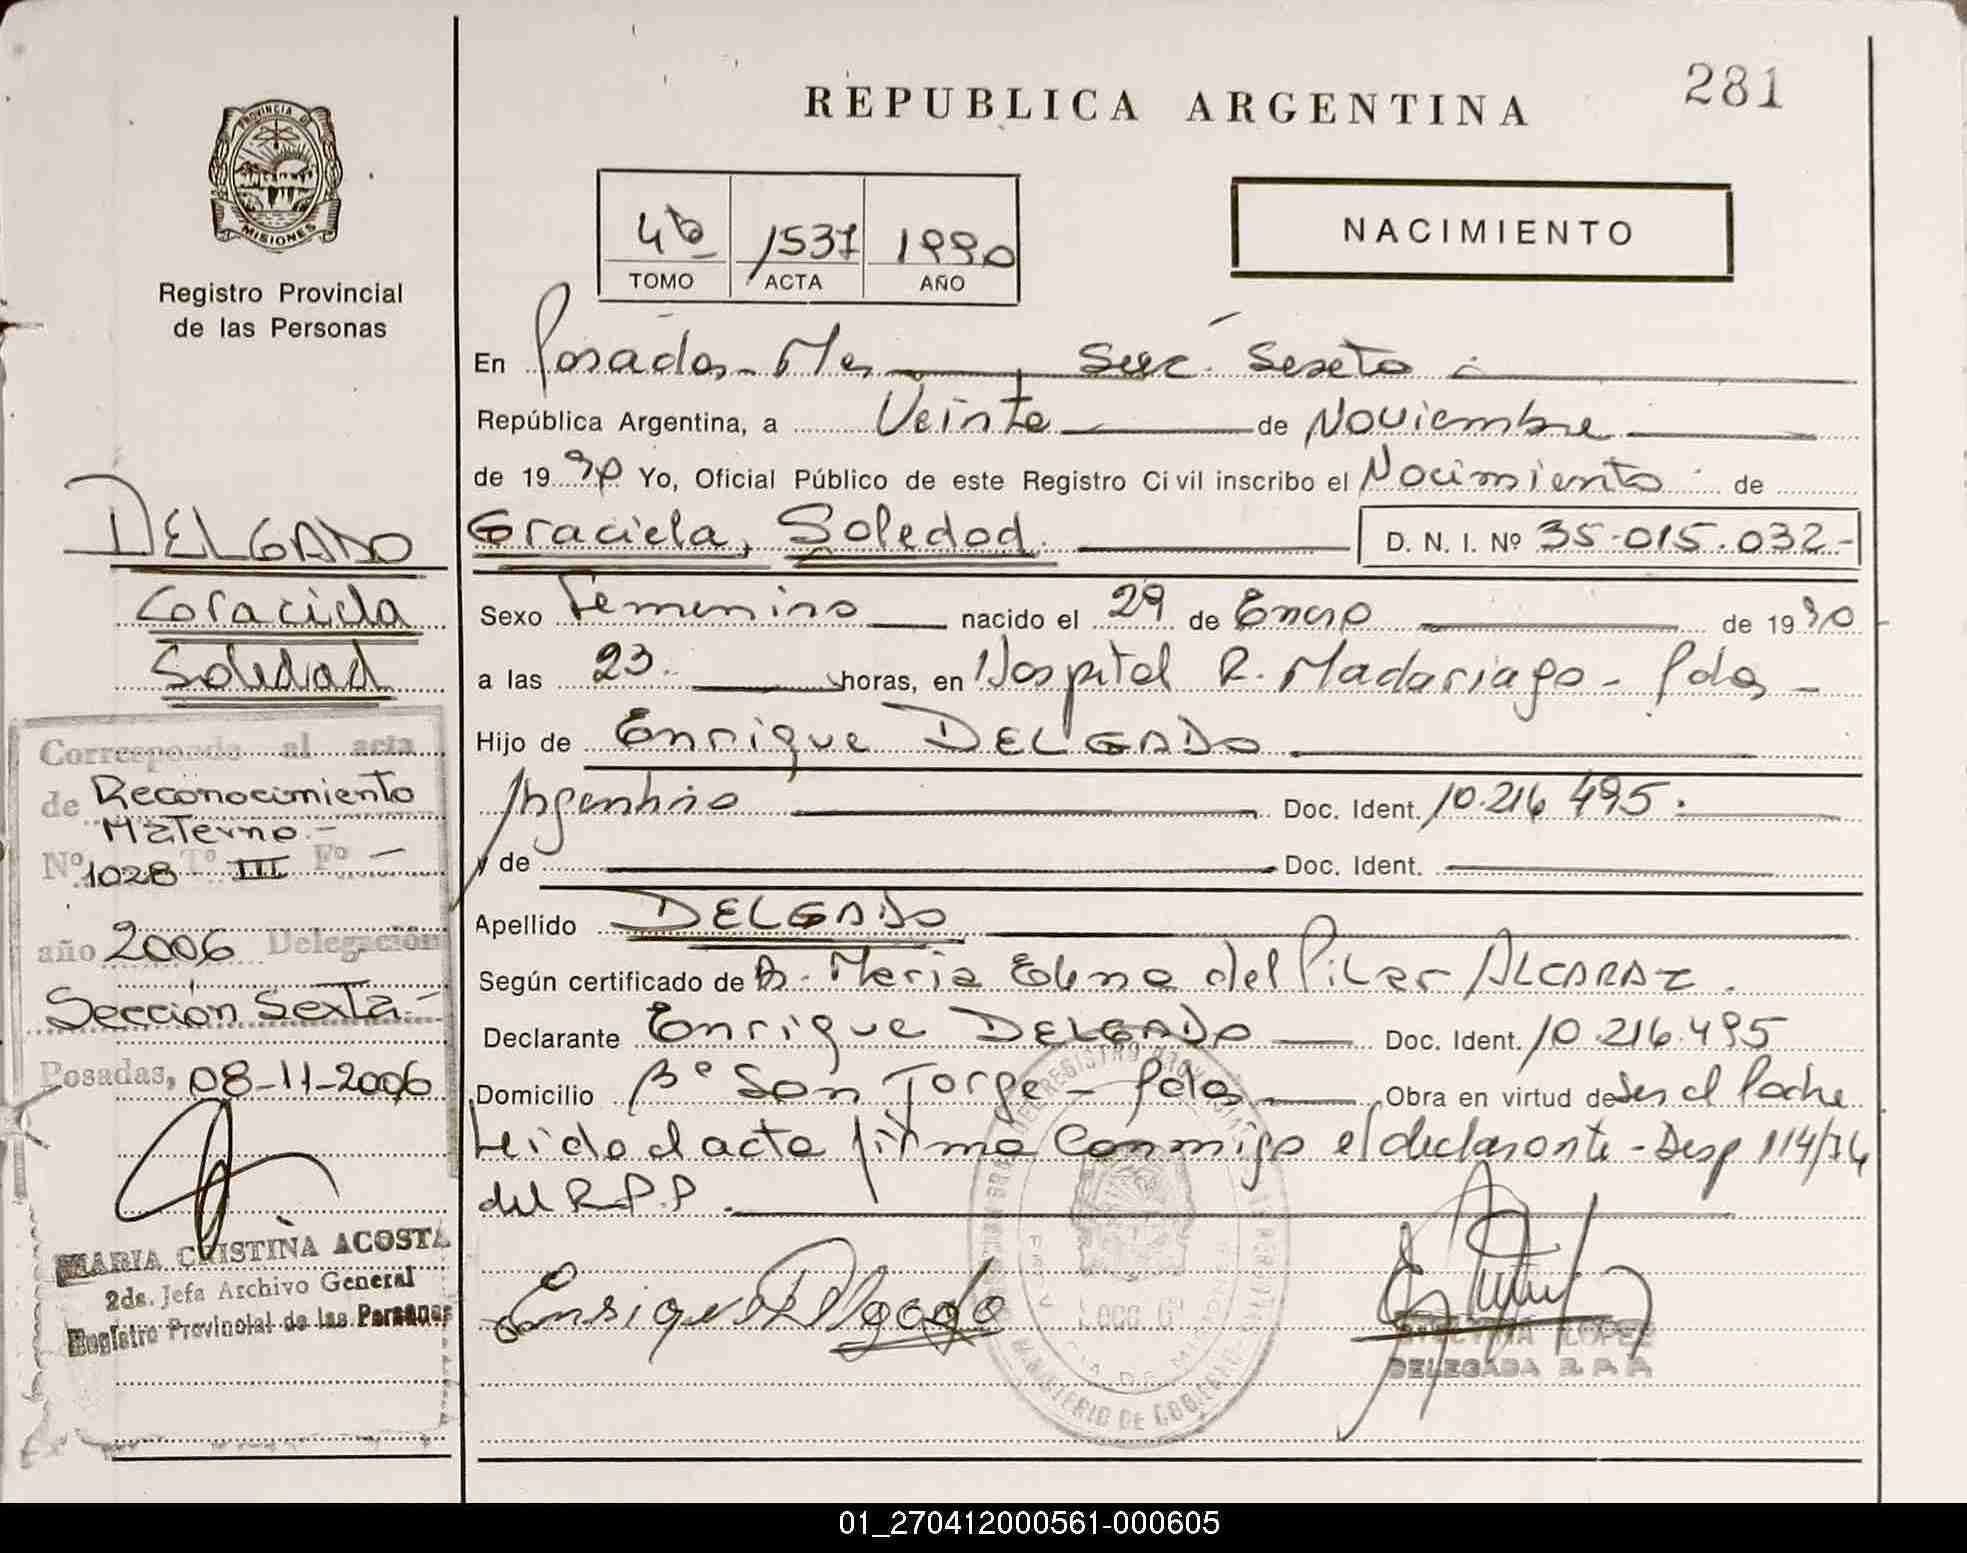 281
REPUBLICA ARGENTINA
PROVINCIA DE
MISIONES
Registro Provincial
de las Personas
4to 1537 1990
TOMO ACTA AÑO
NACIMIENTO
En Posadas - Mes Secc. Sexta
República Argentina, a Veinte de Noviembre
de 1990 Yo, Oficial Público de este Registro Civil inscribo el Nacimiento de
Graciela, Soledad. D. N. I. Nº 35.015.032-
Sexo Femenino nacido el 29 de Enero de 1990
a las 23. horas, en Hospital R. Madariaga - Pdas -
Hijo de Enrique DELGADO
Argentino Doc. Ident. 10.216.495.
y de Doc. Ident.
Apellido DELGADO
Según certificado de Maria Elena del Pilar ALCARAZ.
Declarante Enrique DELGADO Doc. Ident. 10.216.495
Domicilio Bº San Jorge - Pdas Obra en virtud de Ser el Padre
Leido el acta firma conmigo el declarante - Desp 114/74
del R.P.P.
Enrique Delgado
LOPEZ
DELEGADA R.P.P.
DELGADO
Graciela
Soledad
Corresponde al acta
de Reconocimiento
Materno.-
Nº 1028 Tº III Fº -
año 2006 Delegación
Sección Sexta.-
Posadas, 08-11-2006
MARIA CRISTINA ACOSTA
2da. Jefa Archivo General
Registro Provincial de las Personas
MINISTERIO DE GOBIERNO
01_270412000561-000605